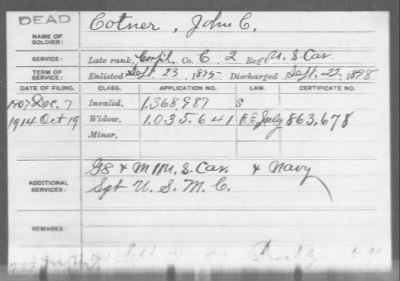 DEAD
NAME OF SOLDIER: Cotner, John C.
SERVICE: Late rank, Corp'l, Co. C, 2 Reg't U.S. Cav.
TERM OF SERVICE: Enlisted Sept. 23, 1895 Discharged Sept. 22, 1898
DATE OF FILING. CLASS. APPLICATION NO. LAW. CERTIFICATE NO.
1907 Dec. 7 Invalid, 1,368,987 S
1914 Oct 19 Widow, 1,035,641 863,678
Minor,
ADDITIONAL SERVICES: G8 & M11 U.S. Cav. & Navy
Sgt U.S.M.C.
REMARKS: